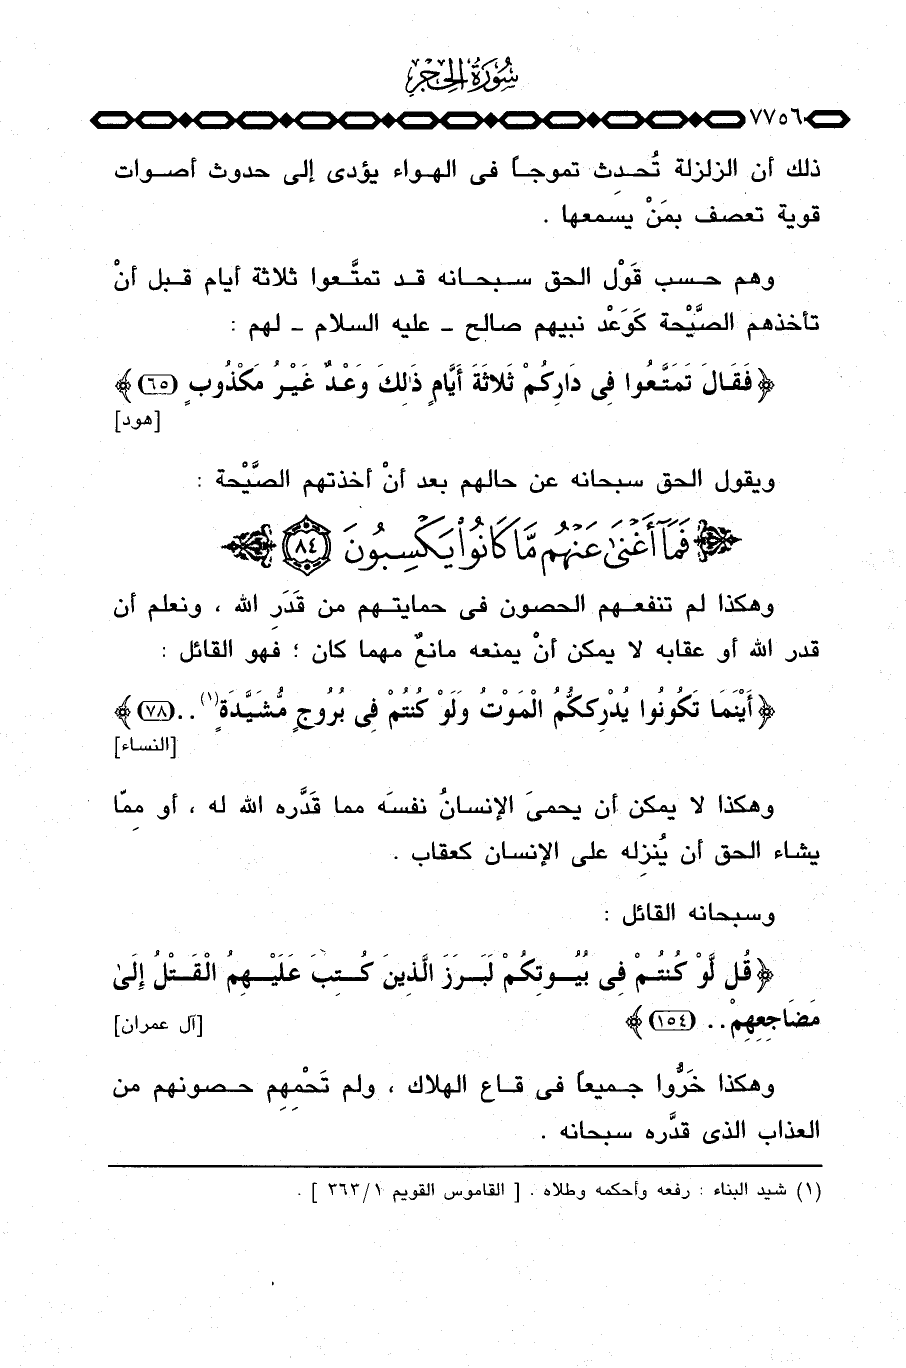 سُورَةُ الحِجْرِ
٧٧٥٦
ذلك أن الزلزلة تُحدث تموجاً فى الهواء يؤدى إلى حدوث أصوات
قوية تعصف بمَنْ يسمعها .
وهم حسب قَوْل الحق سبحانه قد تمتَّعوا ثلاثة أيام قبل أنْ
تأخذهم الصَّيْحة كَوَعْد نبيهم صالح – عليه السلام – لهم :
﴿ فَقَالَ تَمَتَّعُوا فِى دَارِكُمْ ثَلاثَةَ أَيَّامٍ ذَٰلِكَ وَعْدٌ غَيْرُ مَكْذُوبٍ (٦٥) ﴾
[هود]
ويقول الحق سبحانه عن حالهم بعد أنْ أخذتهم الصَّيْحة :
﴿ فَمَآ أَغْنَىٰ عَنْهُم مَّا كَانُوا۟ يَكْسِبُونَ ٨٤ ﴾
وهكذا لم تنفعهم الحصون فى حمايتهم من قَدَرِ الله ، ونعلم أن
قدر الله أو عقابه لا يمكن أنْ يمنعه مانعٌ مهما كان ؛ فهو القائل :
﴿ أَيْنَمَا تَكُونُوا يُدْرِككُّمُ الْمَوْتُ وَلَوْ كُنتُمْ فِى بُرُوجٍ مُّشَيَّدَةٍ(١) ..(٧٨) ﴾
[النساء]
وهكذا لا يمكن أن يحمىَ الإنسانُ نفسَه مما قَدَّره الله له ، أو مِمّا
يشاء الحق أن يُنزِله على الإنسان كعقاب .
وسبحانه القائل :
﴿ قُل لَّوْ كُنتُمْ فِى بُيُوتِكُمْ لَبَرَزَ الَّذِينَ كُتِبَ عَلَيْهِمُ الْقَتْلُ إِلَىٰ
مَضَاجِعِهِمْ .. (١٥٤) ﴾ [آل عمران]
وهكذا خَرُّوا جميعاً فى قاع الهلاك ، ولم تَحْمِهِم حصونهم من
العذاب الذى قدَّره سبحانه .
(١) شيد البناء : رفعه وأحكمه وطلاه . [ القاموس القويم ٣٦٣/١ ] .